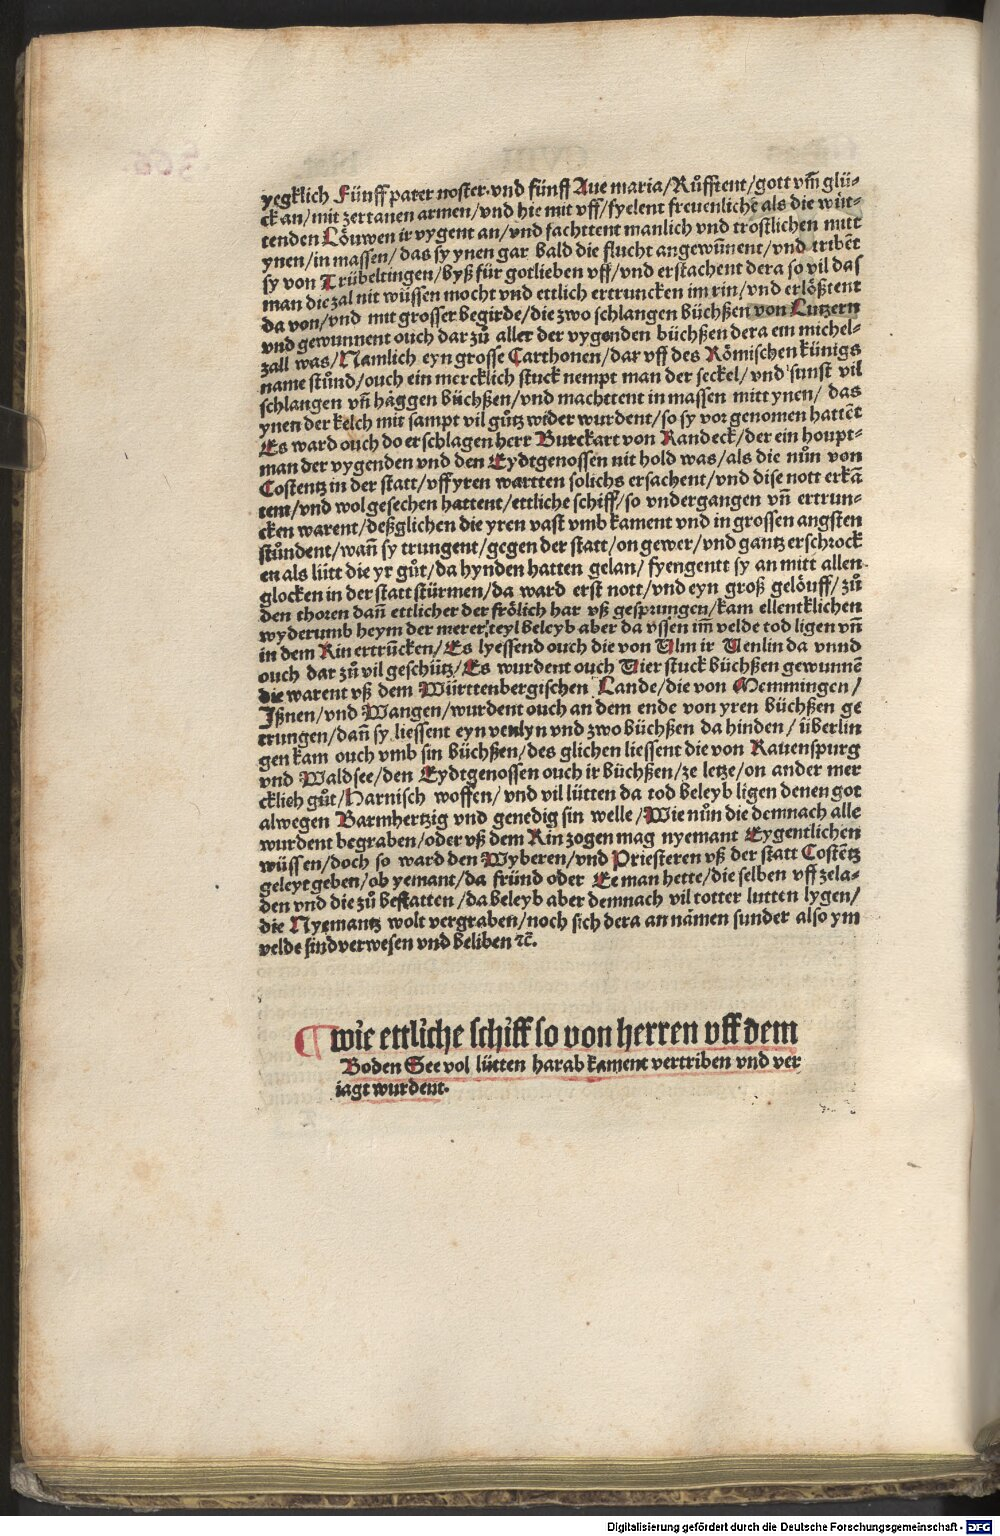 yegklich Fünff pater noster·vnd fünff Aue maria/Růfftent/gott vm̄ glü-
ck an/mit zertanen armen/vnd hie mit vff/fyelent freuenliche als die wüt-
tenden Löuwen ir vygent an/vnd fachttent manlich vnd trostlichen mitt
ynen/in massen/das sy ynen gar bald die flucht angewūnent/vnd tribēt
sy von Trübeltingen/byß für gotlieben vff/vnd erstachent dera so vil das
man die zal nit wüssen mocht vnd ettlich ertruncken im rin/vnd erlößtent
da von/vnd mit grosser begirde/die zwo schlangen büchßen von Lutzern
vnd gewunnent ouch dar zů aller der vygenden büchßen dera ein michel-
zall was/Namlich eyn grosse Carthonen/dar vff des Römischen künigs
name stůnd/ouch ein mercklich stuck nempt man der seckel/vnd sunst vil
schlangen vn̄ häggen büchßen/vnd machttent in massen mitt ynen/das
ynen der kelch mit sampt vil gůtz wider wurdent/so sy vor genomen hattēt
Es ward ouch do erschlagen herr Burckart von Randeck/der ein houpt-
man der vygenden vnd den Eydtgenossen nit hold was/als die nůn von
Costentz in der statt/vff yren wartten solichs ersachent/vnd dise nott erkā
tent/vnd wol gesechen hattent/ettliche schiff/so vndergangen vn̄ ertrun-
cken warent/deßglichen die yren vast vmb kament vnd in grossen angsten
stůndent/wan̄ sy trungent/gegen der statt/on gewer/vnd gantz erschrock
en als lütt die yr gůt/da hynden hatten gelan/fyengentt sy an mitt allen
glocken in der statt stürmen/da ward erst nott/vnd eyn groß gelöuff/zů
den thoren dan̄ ettlicher der frölich har vß gesprungen/kam ellentklichen
wyderumb heym der merer teyl beleyb aber da vssen im̄ velde tod ligen vn̄
in dem Rin ertrūcken/Es lyessend ouch die von Ulm ir Venlin da vnnd
ouch dar zů vil geschütz/Es wurdent ouch Vier stuck büchßen gewunnē
die warent vß dem Württenbergischen Lande/die von Memmingen/
Jßnen/vnd Wangen/wurdent ouch an dem ende von yren büchßen ge
trungen/dan̄ sy liessent eyn venlyn vnd zwo büchßen da hinden/überlin
gen kam ouch vmb sin büchßen/des glichen liessent die von Rauenspurg
vnd Waldsee/den Eydtgenossen ouch ir büchßen/ze letze/on ander mer
cklich gůt/Harnisch woffen/vnd vil lütten da tod beleyb ligen denen got
alwegen Barmhertzig vnd genedig sin welle/Wie nůn die demnach alle
wurdent begraben/oder vß dem Rin zogen mag nyemant Eygentlichen
wüssen/doch so ward den Wyberen/vnd Priesteren vß der statt Costētz
geleyt geben/ob yemant/da fründ oder Ee man hette/die selben vff zela-
den vnd die zů bestatten/da beleyb aber demnach vil totter lutten lygen/
die Nyemantz wolt vergraben/noch sich dera an nämen sunder also ym
velde sind verwesen vnd beliben ⁊c̄.
¶ wie ettliche schiff so von herren vff dem
Boden See vol lütten harab kament vertriben vnd ver
iagt wurdent·
Digitalisierung gefördert durch die Deutsche Forschungsgemeinschaft - DFG